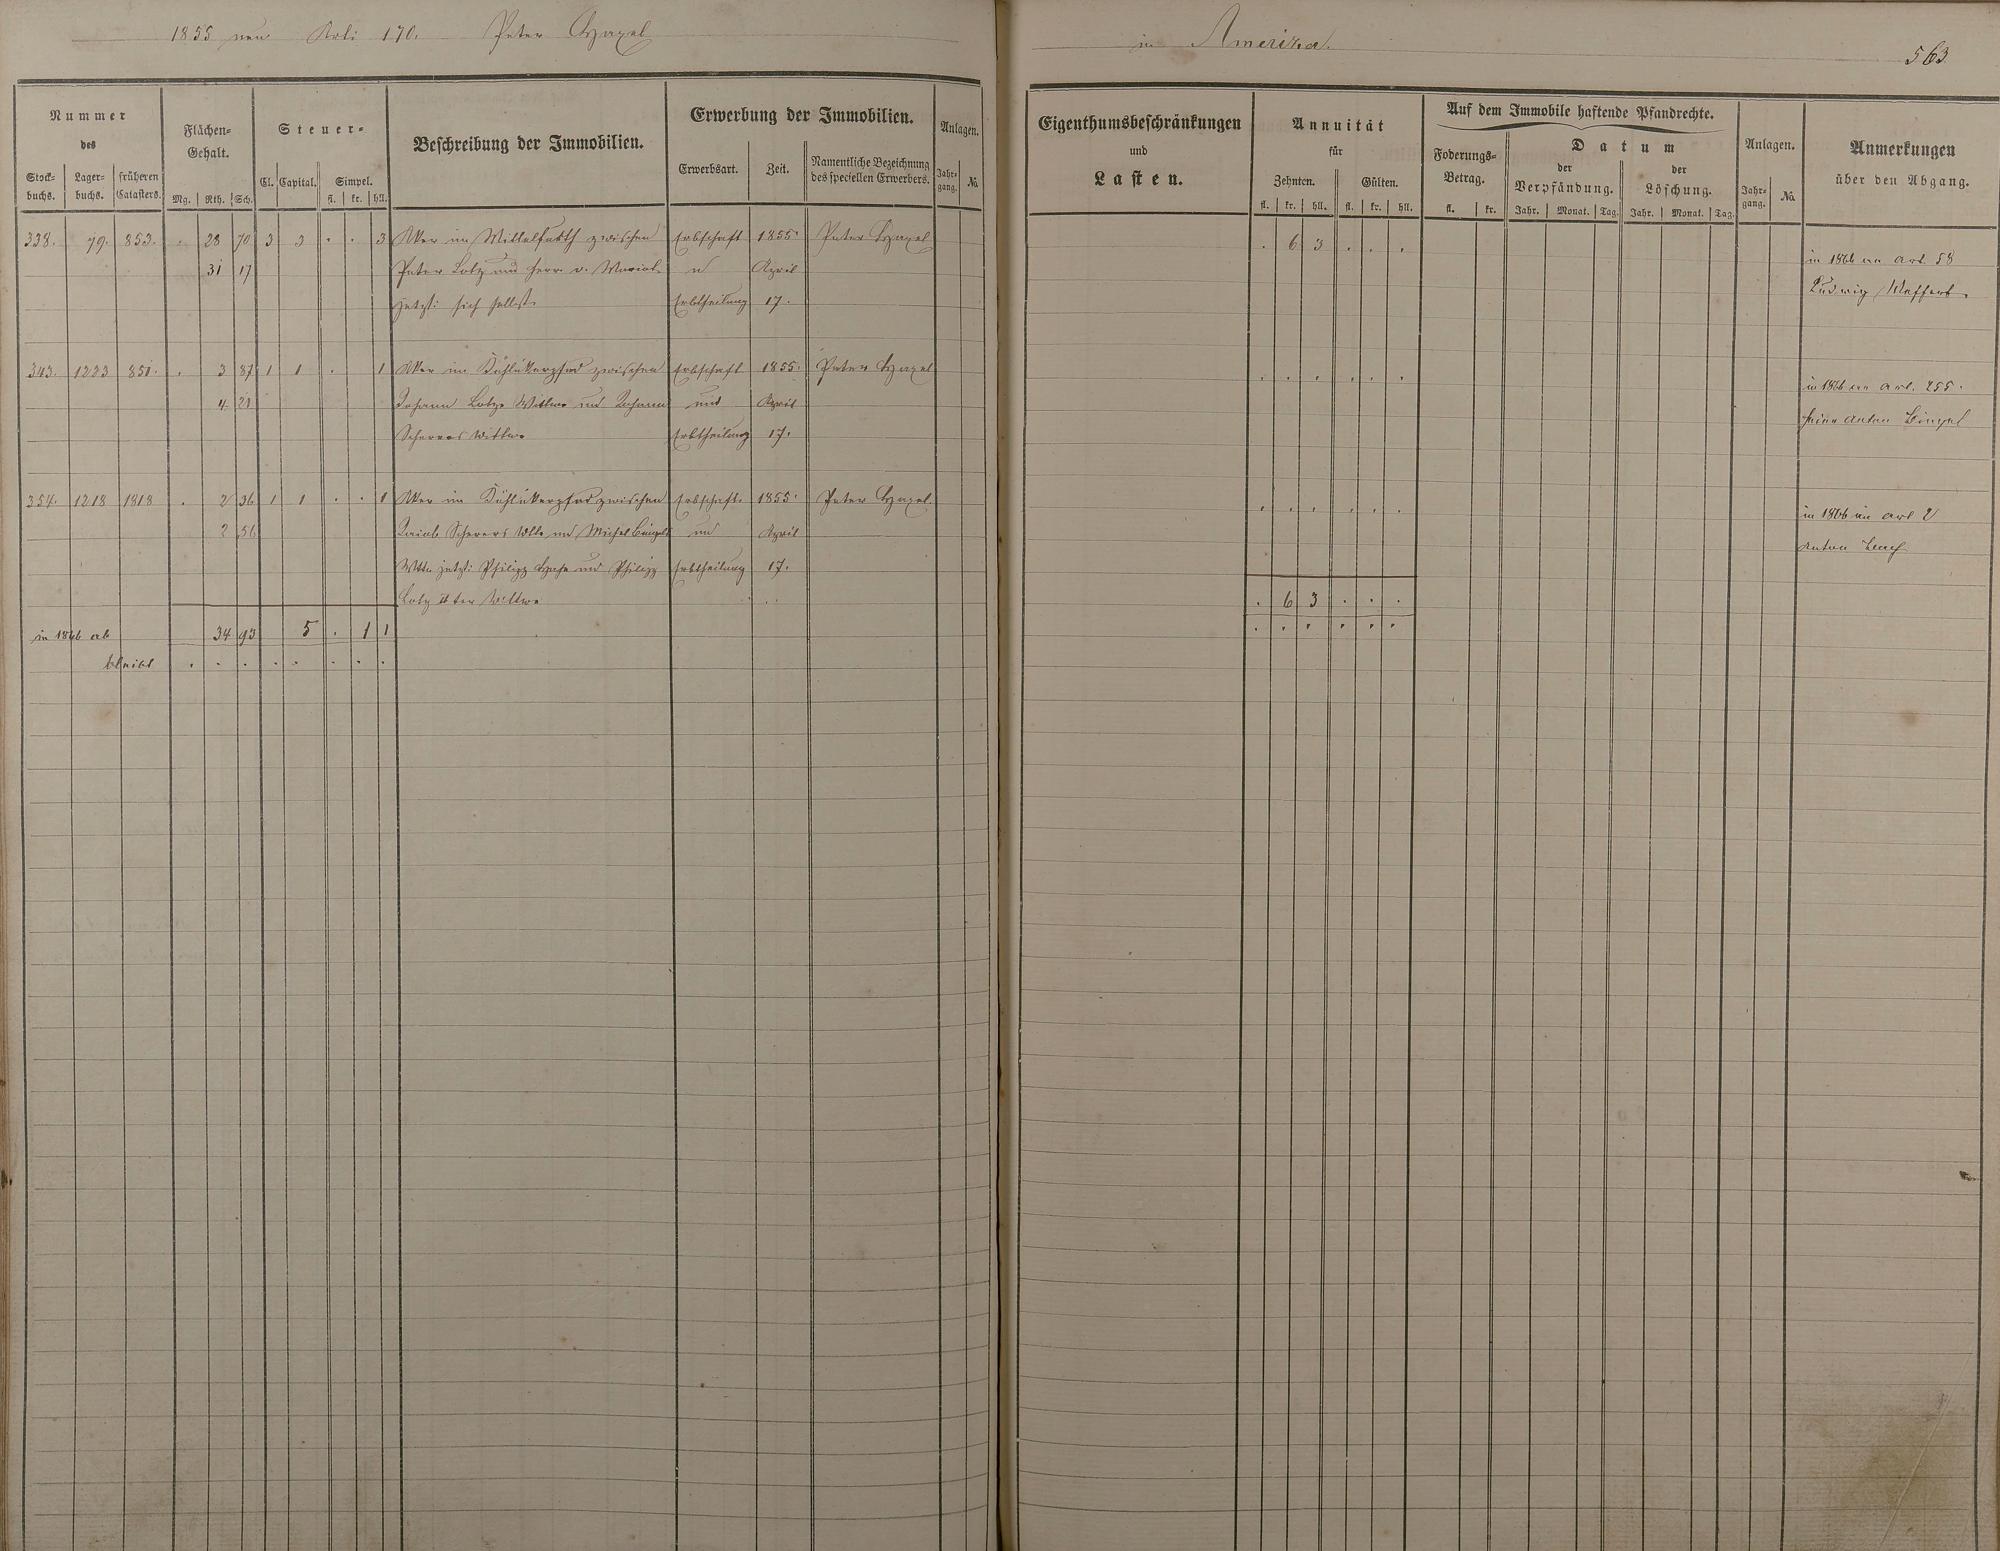 1855 neu Arti 170. Peter
in Amerika.
563
Nummer
des
Stock-buchs. Lager-buchs. früheren Catasters.
Flächen-Gehalt.
Mg. Rth. Sch.
Steuer-
Cl. Capital. Simpel.
fl. kr. hll.
Beschreibung der Immobilien.
Erwerbung der Immobilien.
Erwerbsart. Zeit. Namentliche Bezeichnung des speciellen Erwerbers.
Anlagen.
Jahr-gang. No.
Eigenthumsbeschränkungen
und
Lasten.
Annuität
für
Zehnten. Gülten.
fl. kr. hll. fl. kr. hll.
Auf dem Immobile haftende Pfandrechte.
Foderungs-Betrag.
fl. kr.
Datum
der Verpfändung. der Löschung.
Jahr. Monat. Tag. Jahr. Monat. Tag.
Anlagen.
Jahr-gang. No.
Anmerkungen
über den Abgang.
338. 79. 853. . 28 70 3 3 . . 3 Aker im zwischen Erbschaft 1855 Peter . 6 3 . . .
31 17 Peter Lotz und Herr v. u April in 1866 an Art. 58
jetzt: sich selbst Erbtheilung 17. Ludwig
343. 1223 851. . 3 87 1 1 . 1 Aker im zwischen Erbschaft 1855. Peter . . . . . .
4 21 Johann Lotz Wittwe und Johann und April in 1866 an Art. 255.
Scherers Wittwe Erbtheilung 17. Anton
354. 1218 1818 . 2 36 1 1 . . 1 Aker im zwischen Erbschaft 1855. Peter . . . . . .
2 56 Jacob Scherers Wtte und Michel und April in 1866 an Art 2
Wtte jetzt: Philipp und Philipp Erbtheilung 17. Anton
Lotz 2ter Wittwe . 6 3 . . .
in 1866 ab 34 93 5 . 1 1 . . . . . .
bleibt . . . . . . . .